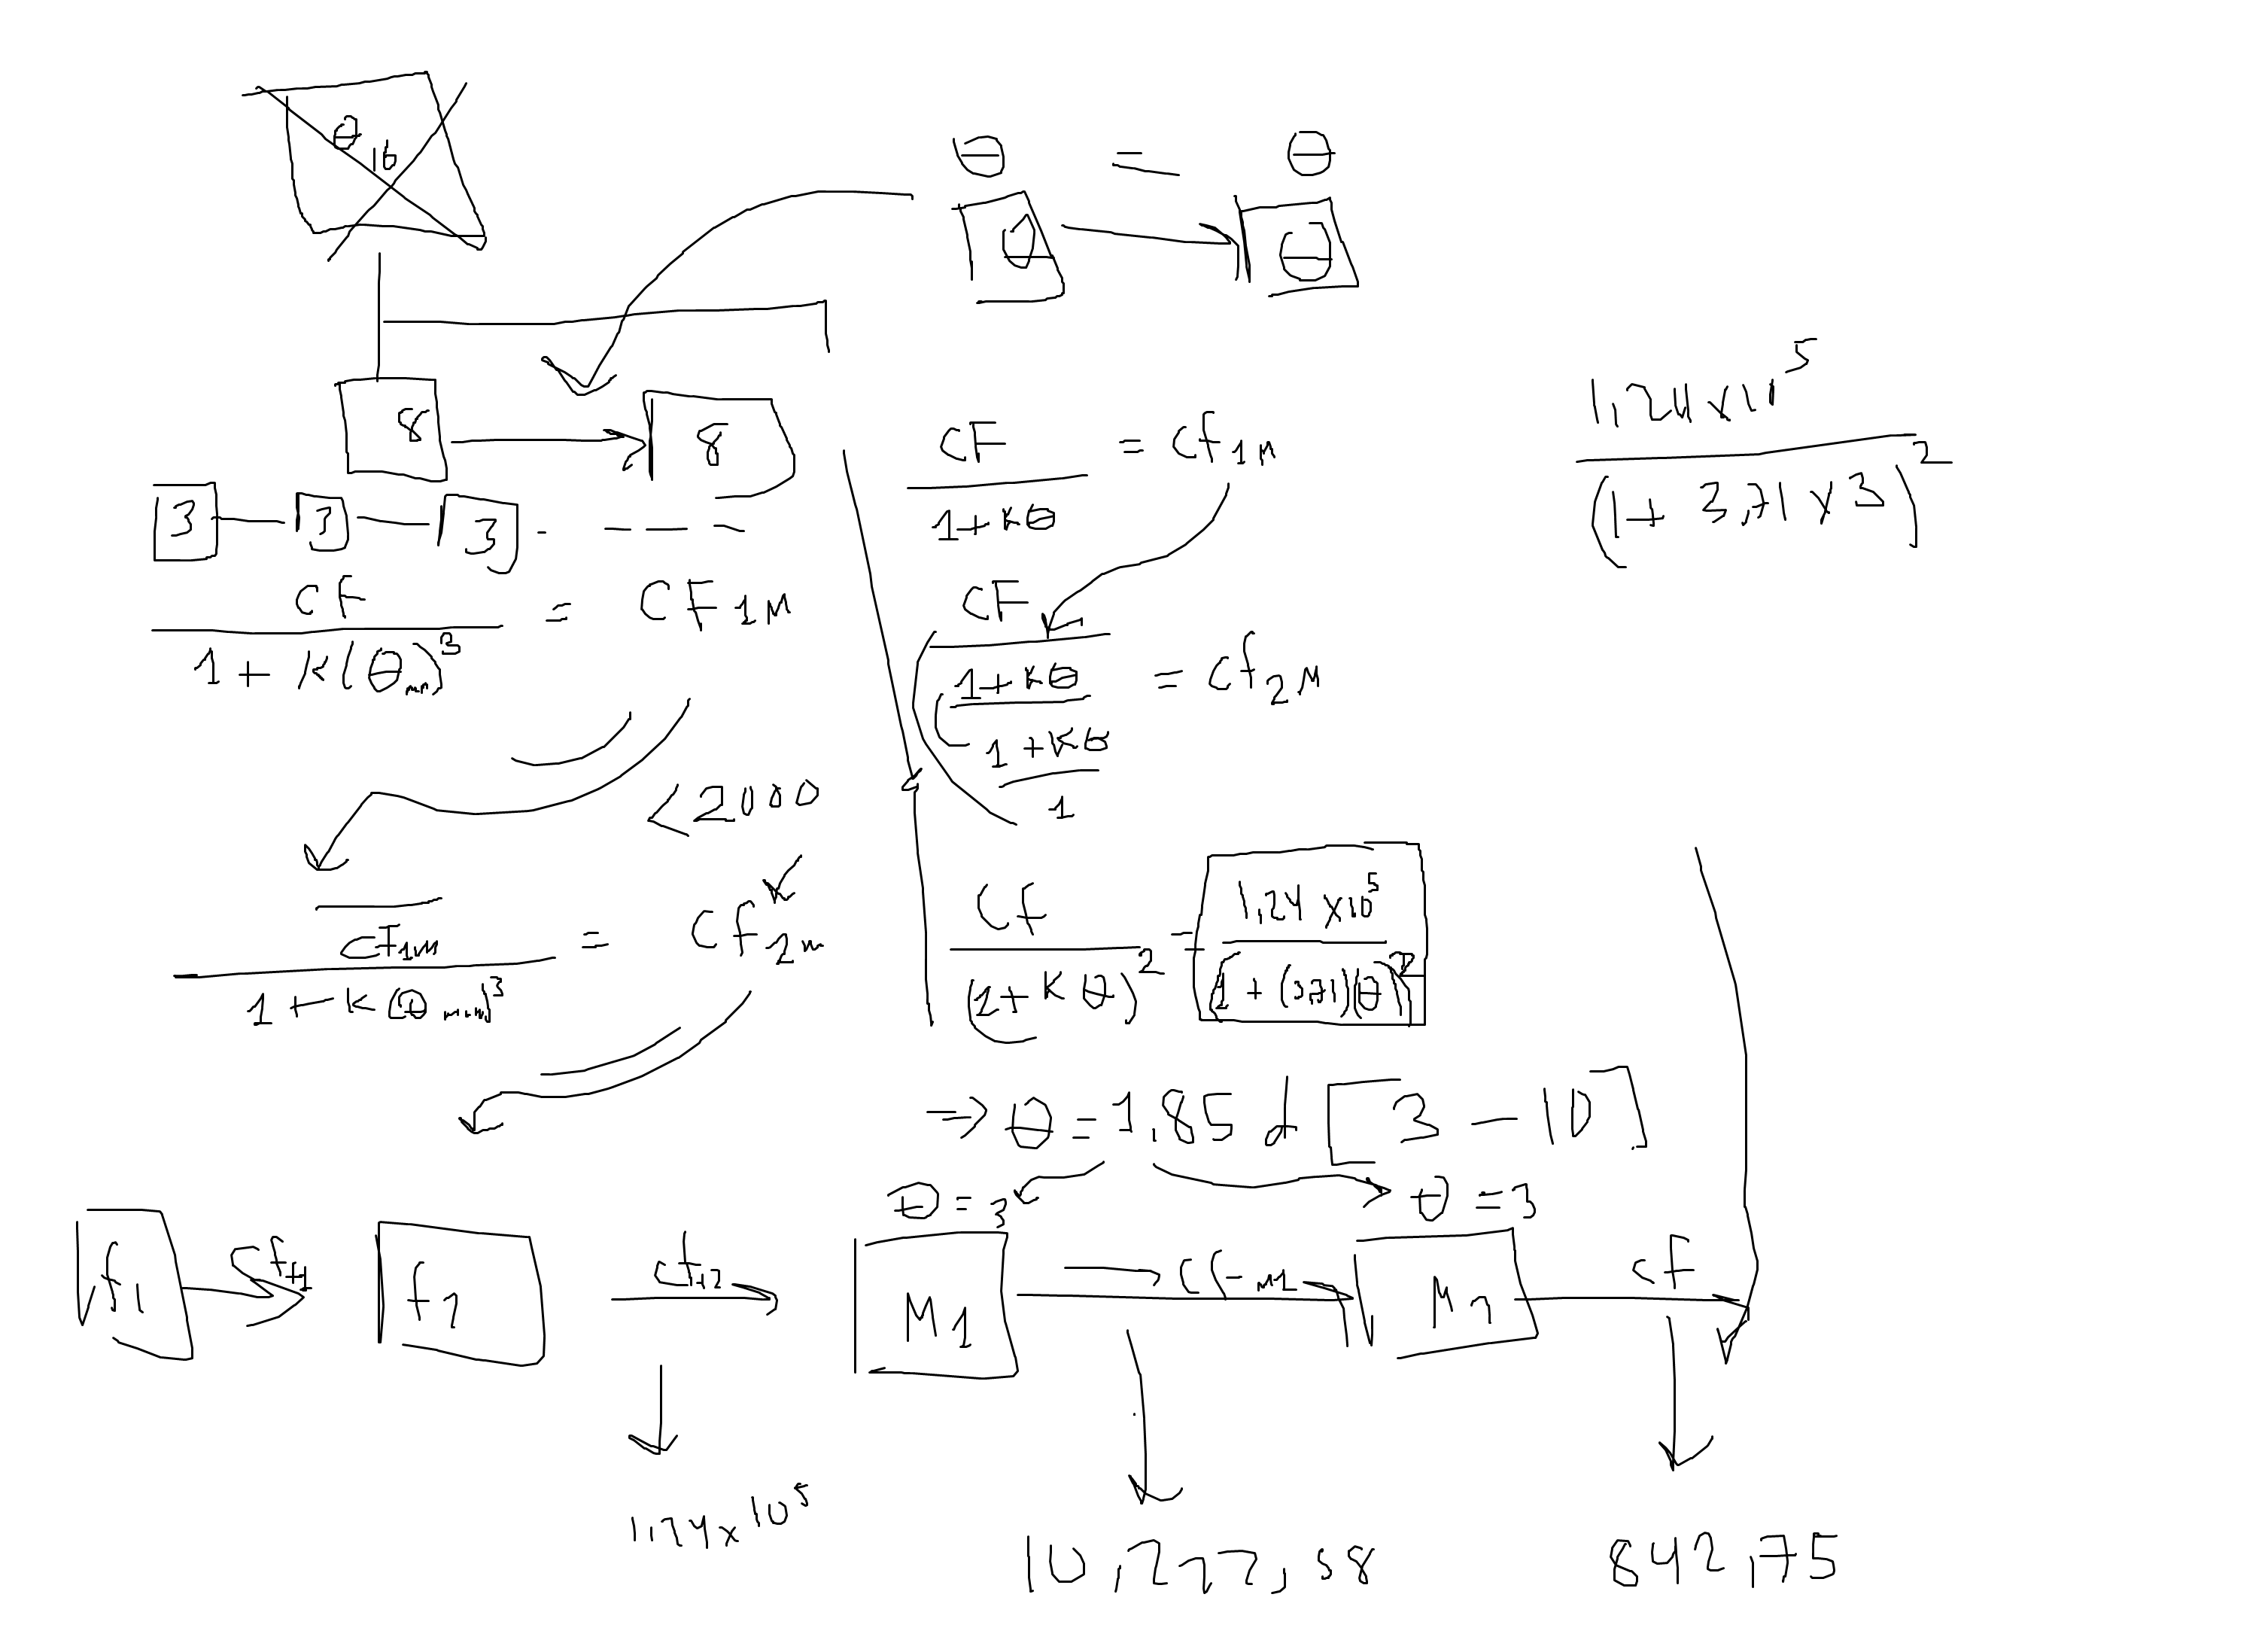 θ 16
θ = θ
θ θ
8 8
3 3 3 - - - - -
CF / 1+k(θm)^3 = CF1M
<2000
CF1M / 1+k(θmin)^3 = CF2M
CF / 1+Kθ = Cf1M
CF / 1+Kθ / 1+Kθ / 1 = Cf2M
Cf / (1+Kθ)^2 = 1,24 x10^5 / (1+(3,71)(θ))^2
1,24 x10^5 / (1+ 3,71 x 3)^2
→ θ = 1,85 d [3 – 10]
θ = 3 θ = 3
f1 Cff1 f2 Cff2 M1 Cf M1 M2 CF
1,24 x 10^5
842,75